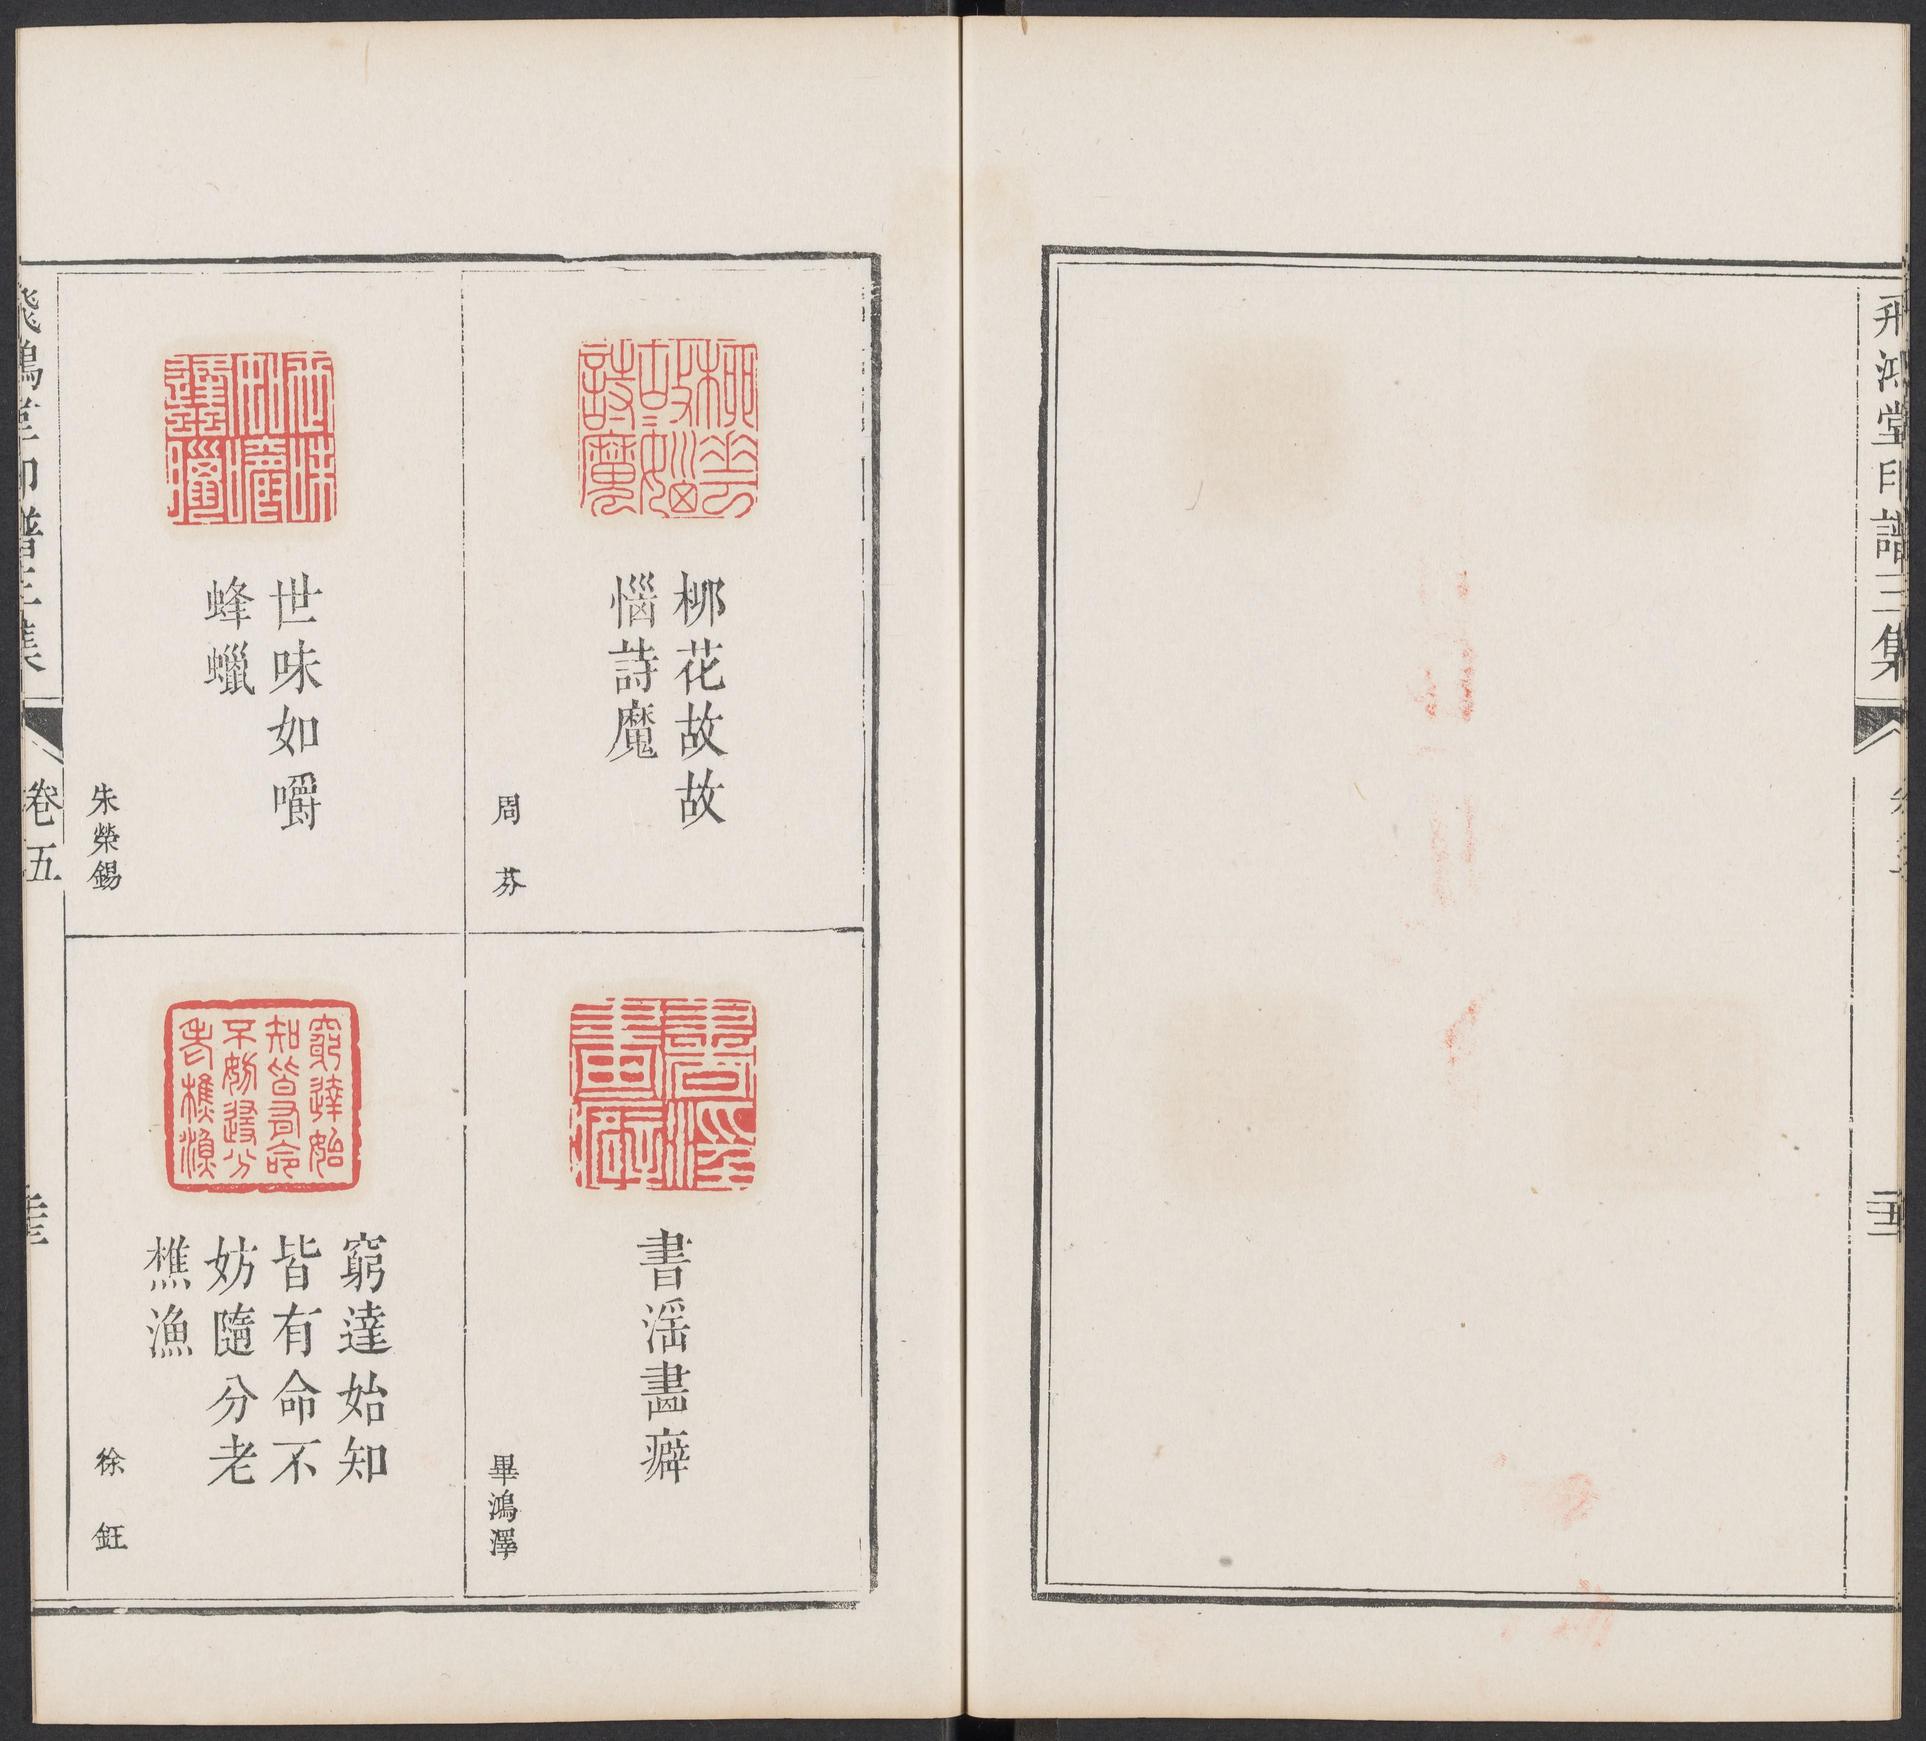 飛鴻堂印譜三集
卷五
柳花故故
惱詩魔
周芬
世味如嚼
蜂蠟
朱榮錫
書滛畵癖
畢鴻澤
窮達始知
皆有命不
妨隨分老
樵漁
徐鈺
飛鴻堂印譜三集
卷五